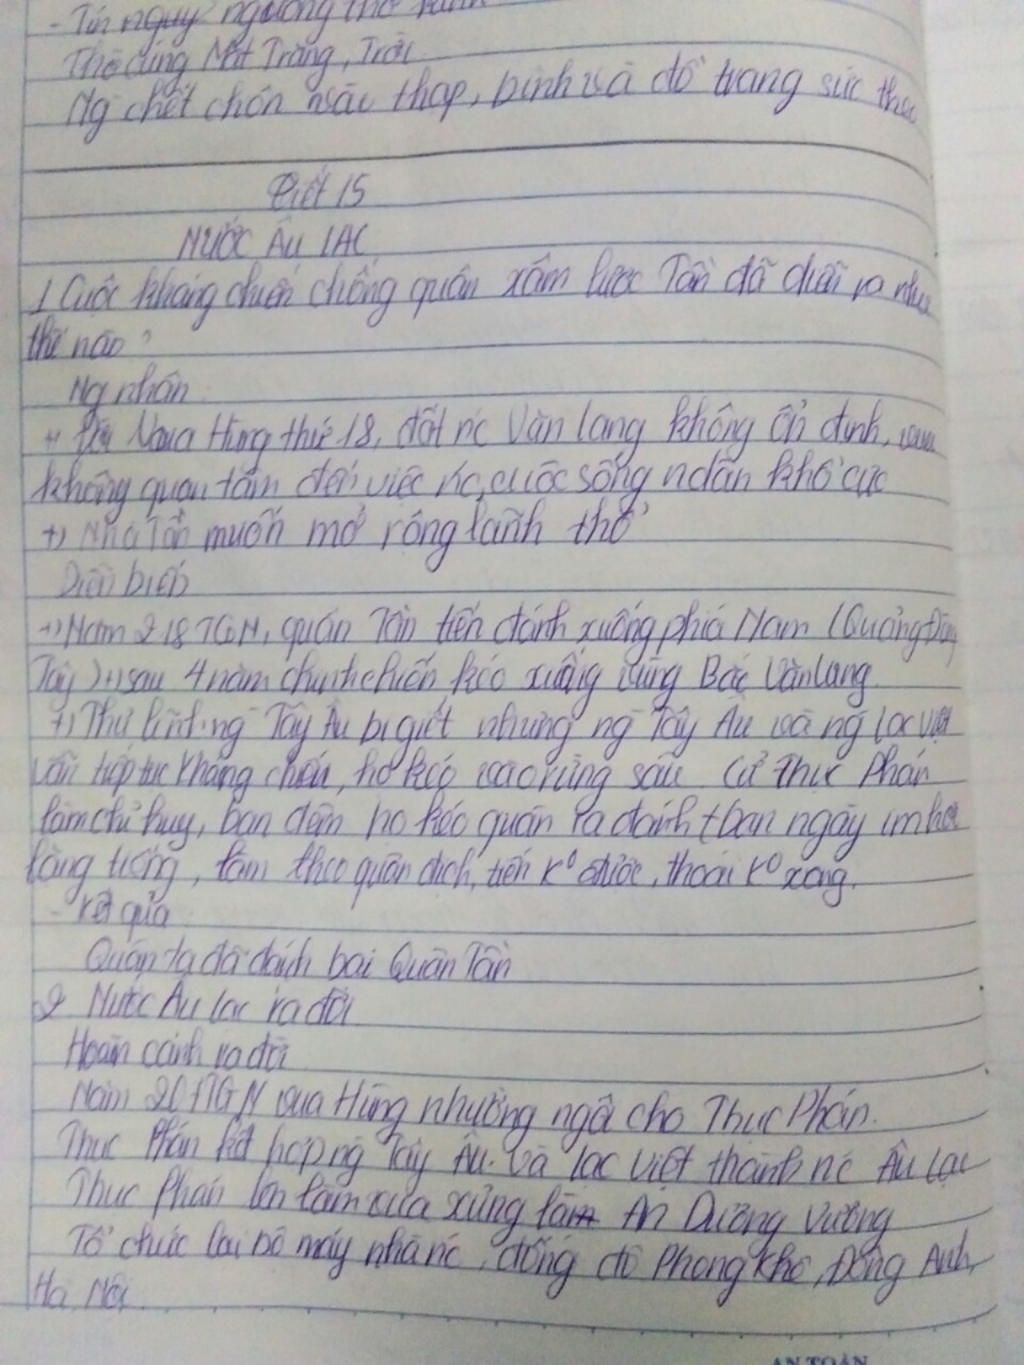 - Tín ngưỡng thờ
Thờ cúng Mặt Trăng, Trời
Ng chết chôn vào thạp, bình và đồ trang sức theo
Tiết 15
NƯỚC ÂU LẠC
1 Cuộc kháng chiến chống quân xâm lược Tần đã diễn ra như
thế nào?
Ng nhân
+ Đời Vua Hùng thứ 18, đất nc Văn Lang không ổn định, vua
không quan tâm đến việc nc, cuộc sống ndân khổ cực
+) Nhà Tần muốn mở rộng lãnh thổ
Diễn biến
+) Năm 218 TCN, quân Tần tiến đánh xuống phía Nam (Quảng Đông
Tây) +) sau 4 năm chinh chiến kéo xuống vùng Bắc Văn Lang
+) Thủ lĩnh ng Tây Âu bị giết nhưng ng Tây Âu và ng Lạc Việt
vẫn tiếp tục kháng chiến, họ kéo vào rừng sâu Cử Thục Phán
làm chỉ huy, ban đêm họ kéo quân ra đánh + ban ngày im hơi
lặng tiếng, làm theo quân địch, tiến k⁰ được, thoái k⁰ xong.
- Kết quả
Quân ta đã đánh bại Quân Tần
2 Nước Âu Lạc ra đời
Hoàn cảnh ra đời
Năm 207TCN vua Hùng nhường ngôi cho Thục Phán.
Thục Phán kết hợp ng Tây Âu và Lạc Việt thành nc Âu Lạc
Thục Phán lên làm vua xưng làm An Dương Vương
Tổ chức lại bộ máy nhà nc, đóng đô Phong Khê, Đông Anh,
Hà Nội
AN TOÀN